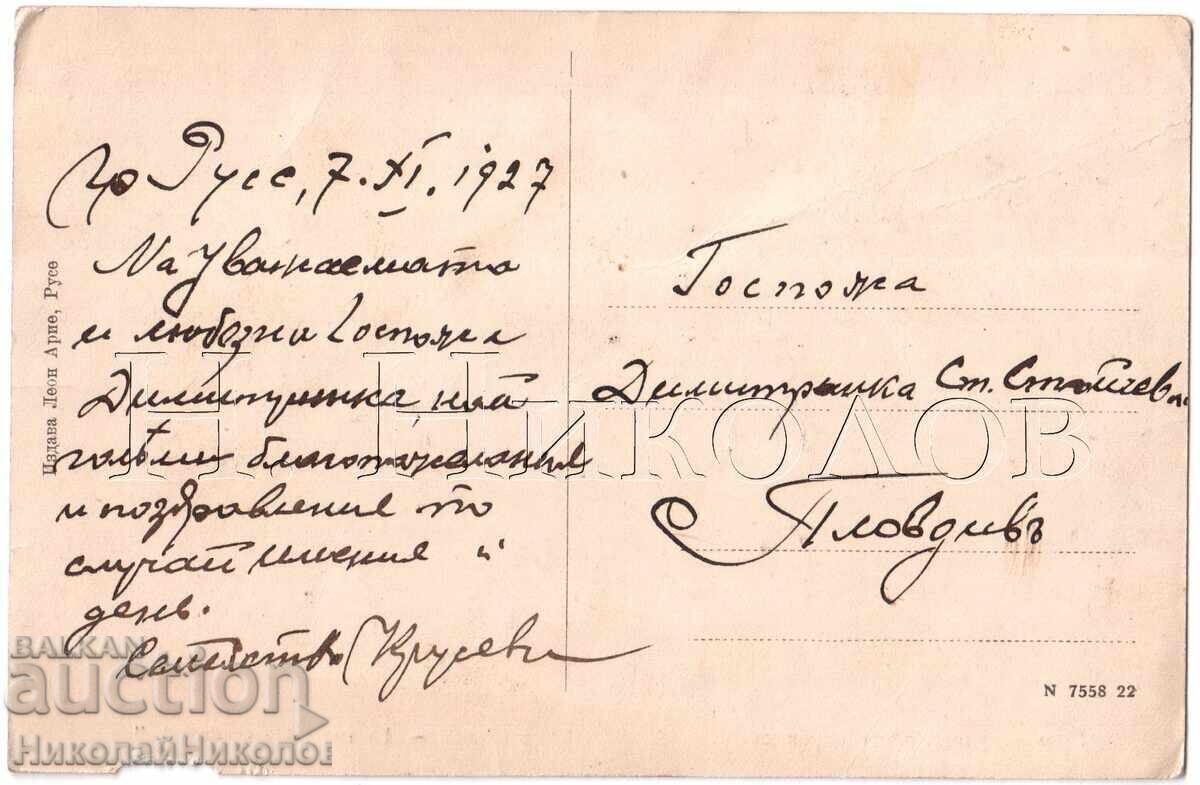 Издава Леон Арие, Русе
гр Русе, 7.XI.1927
На Уважаемата
и любезна Госпожа
Димитринка, най
голѣми благопожелания
и поздравление по
случай имения ѝ
день.
Семейство Крусеви
Госпожа
Димитринка Ст. Стойчева
Пловдивъ
N 7558 22
Н НИКОЛОВ
BALKAN
auction
НиколайНиколов